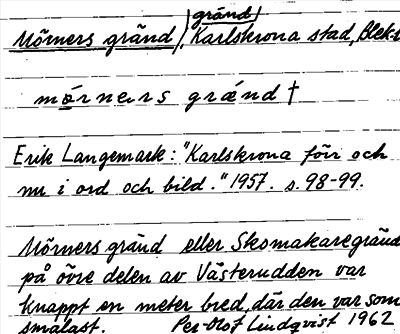 gränd
Mörners gränd, Karlskrona stad, Blek-
mö̱rners gränd †
Erik Langemark: "Karlskrona förr och
nu i ord och bild." 1957. s. 98-99.
Mörners gränd eller Skomakaregränd
på övre delen av Västerudden var
knappt en meter bred, där den var som
smalast. Per-Olof Lindqvist 1962